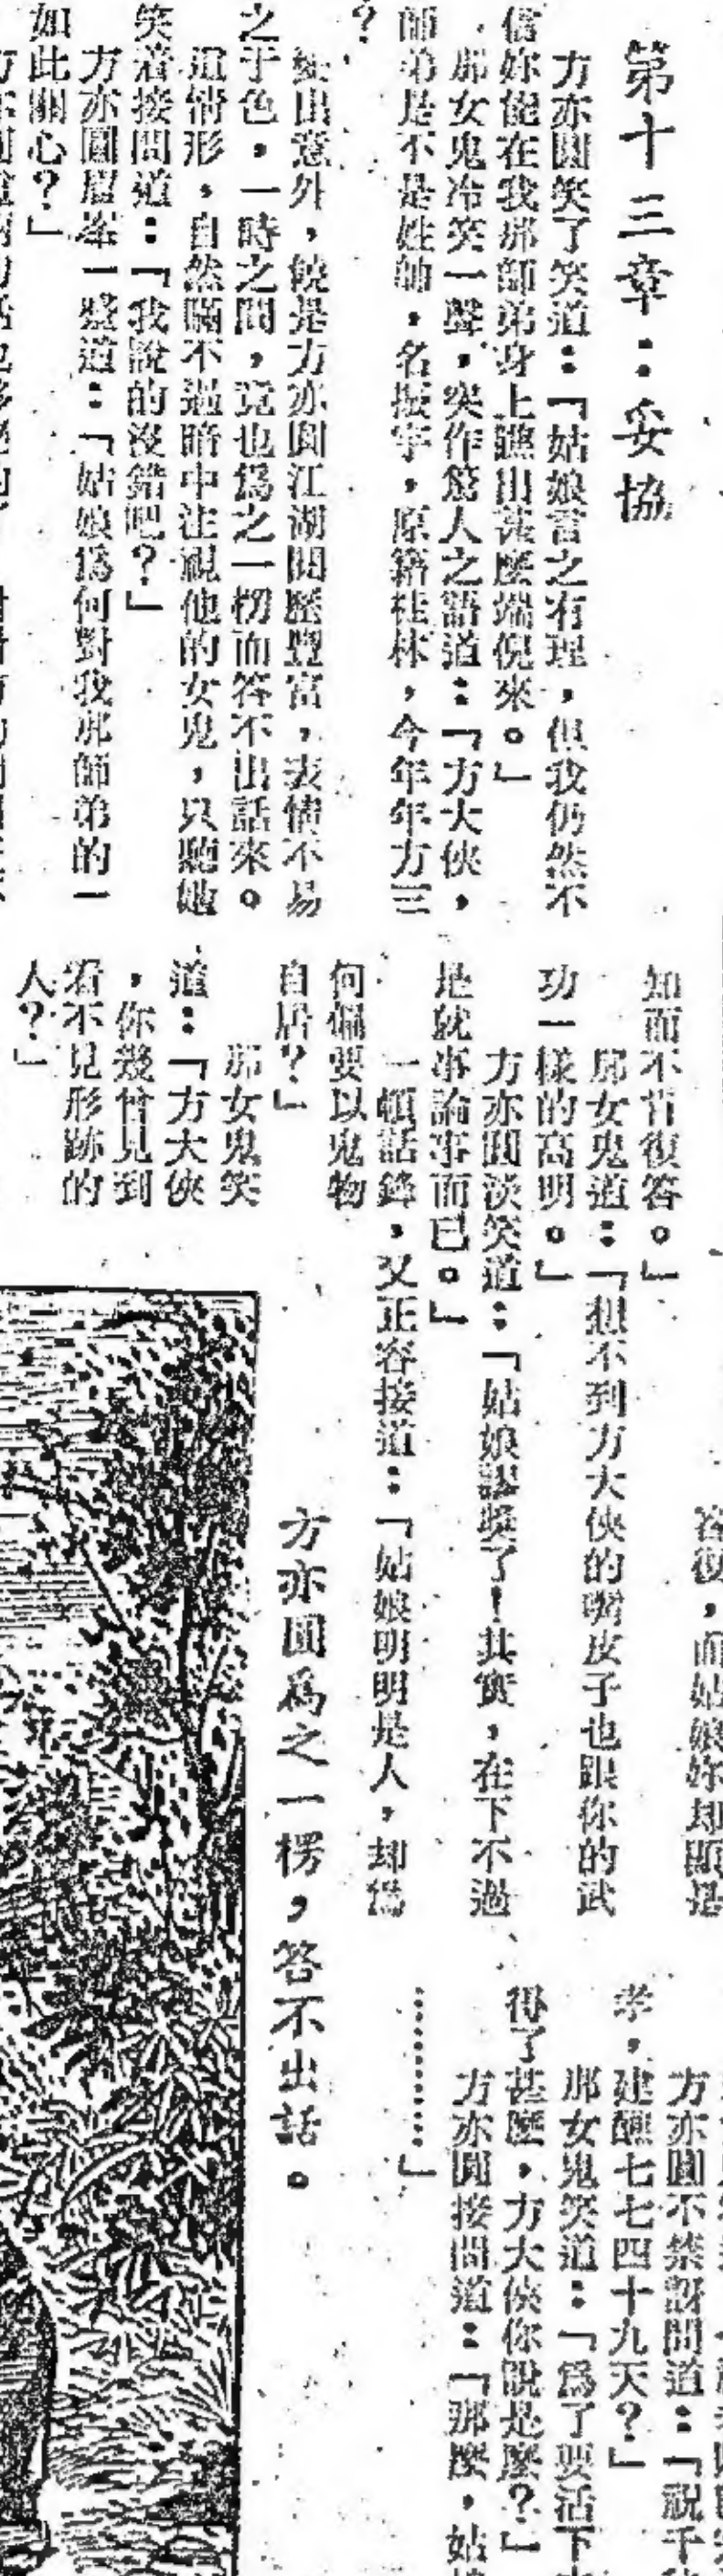 第十三章：妥協
方亦圓笑了笑道：「姑娘言之有理，但我仍然不
信妳能在我那師弟身上瞧出甚麼端倪來。」
那女鬼冷笑一聲，突作驚人之語道：「方大俠，
師弟是不是姓帥，名振宇，原籍桂林，今年年方三
？
變出意外，饒是方亦圓江湖閱歷豐富，表情不易
之于色，一時之間，竟也為之一楞而答不出話來。
這情形，自然瞞不過暗中注視他的女鬼，只聽她
笑着接問道：「我說的沒錯吧？」
方亦圓眉峯一蹙道：「姑娘為何對我那師弟的一
如此關心？」
知而不肯復答。」
那女鬼道：「想不到方大俠的嘴皮子也跟你的武
功一樣的高明。」
方亦圓淡笑道：「姑娘謬獎了！其實，在下不過
是就事論事而已。」
一頓話鋒，又正容接道：「姑娘明明是人，却為
何偏要以鬼物
自居？」
那女鬼笑
道：「方大俠
，你幾曾見到
看不見形跡的
人？」
答復，而姑娘妳却顯是
方亦圓為之一楞，答不出話。
方亦圓不禁訝問道：「祝千
孝，建醮七七四十九天？」
那女鬼笑道：「為了要活下
得了甚麼，方大俠你說是麼？」
方亦圓接問道：「那麼，姑
…………」